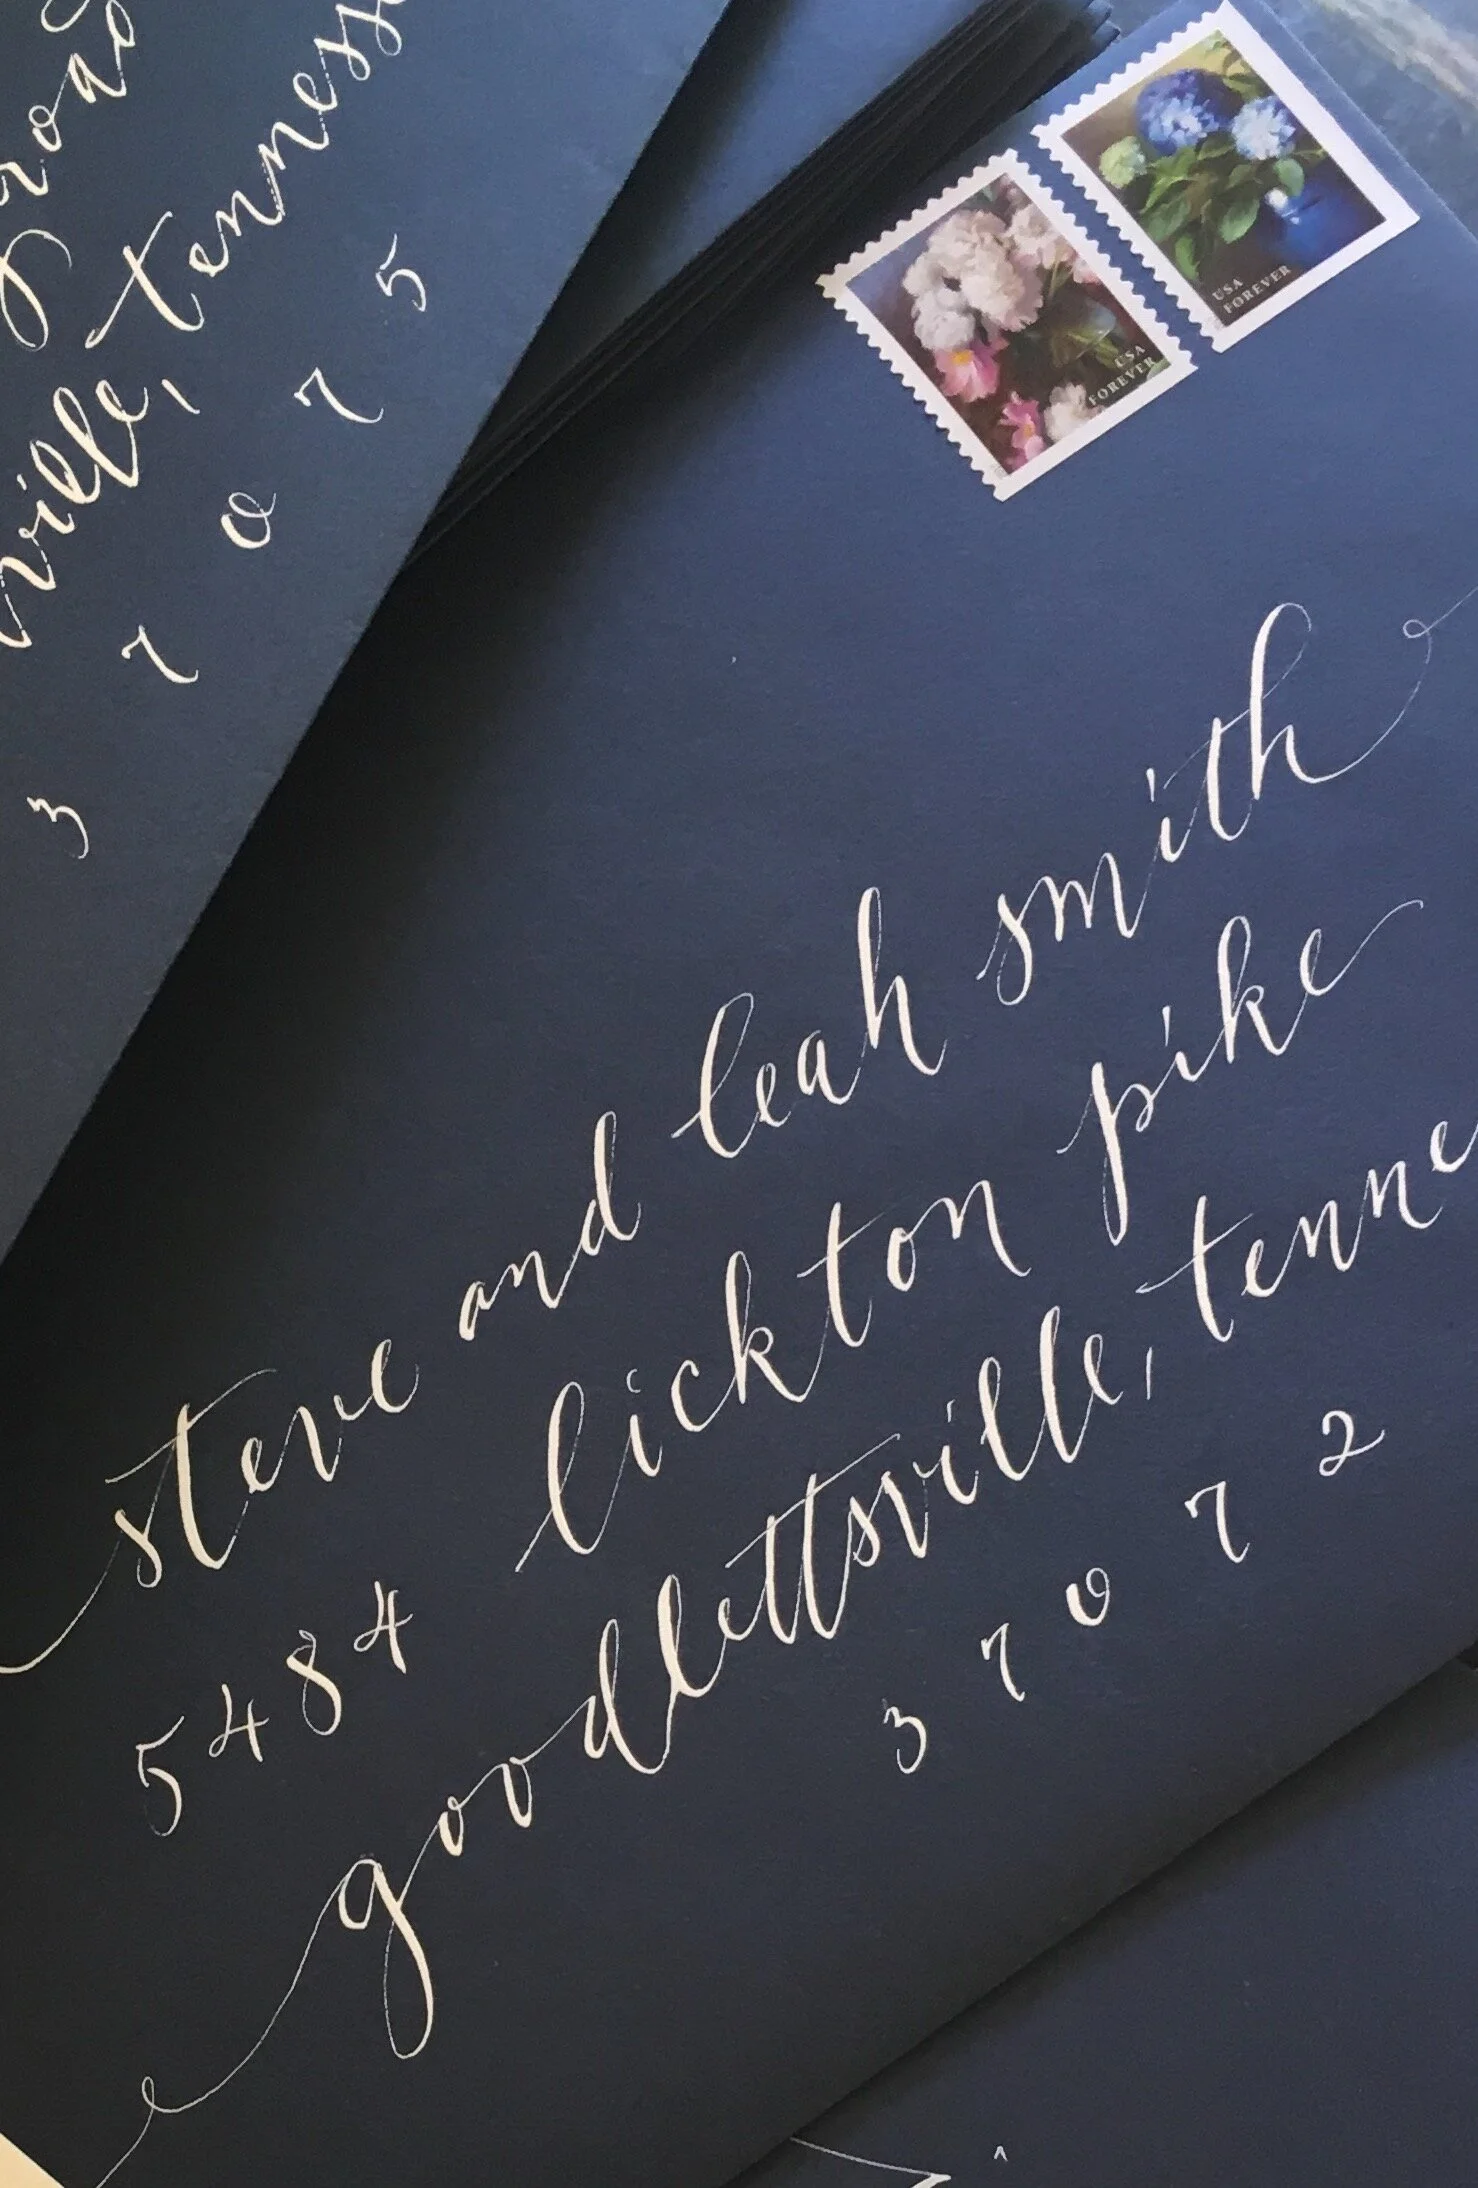 tenness
ville,
3 7 0 7 5
USA
FOREVER
USA
FOREVER
steve and leah smith
5484 lickton pike
goodlettsville, tenne
3 7 0 7 2